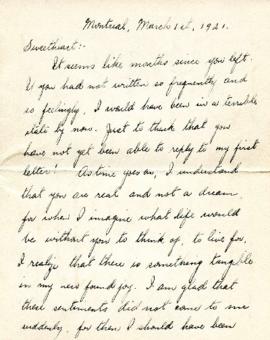 Montreal, March 1st, 1921.
Sweetheart:-
It seems like months since you left.
If you had not written so frequently and
so feelingly, I would have been in a terrible
state by now. Just to think that you
have not yet been able to reply to my first
letter! As time goes on, I understand
that you are real and not a dream,
for when I imagine what life would
be without you to think of, to live for,
I realize that there is something tangible
in my new found joy. I am glad that
these sentiments did not come to me
suddenly, for then I should have been